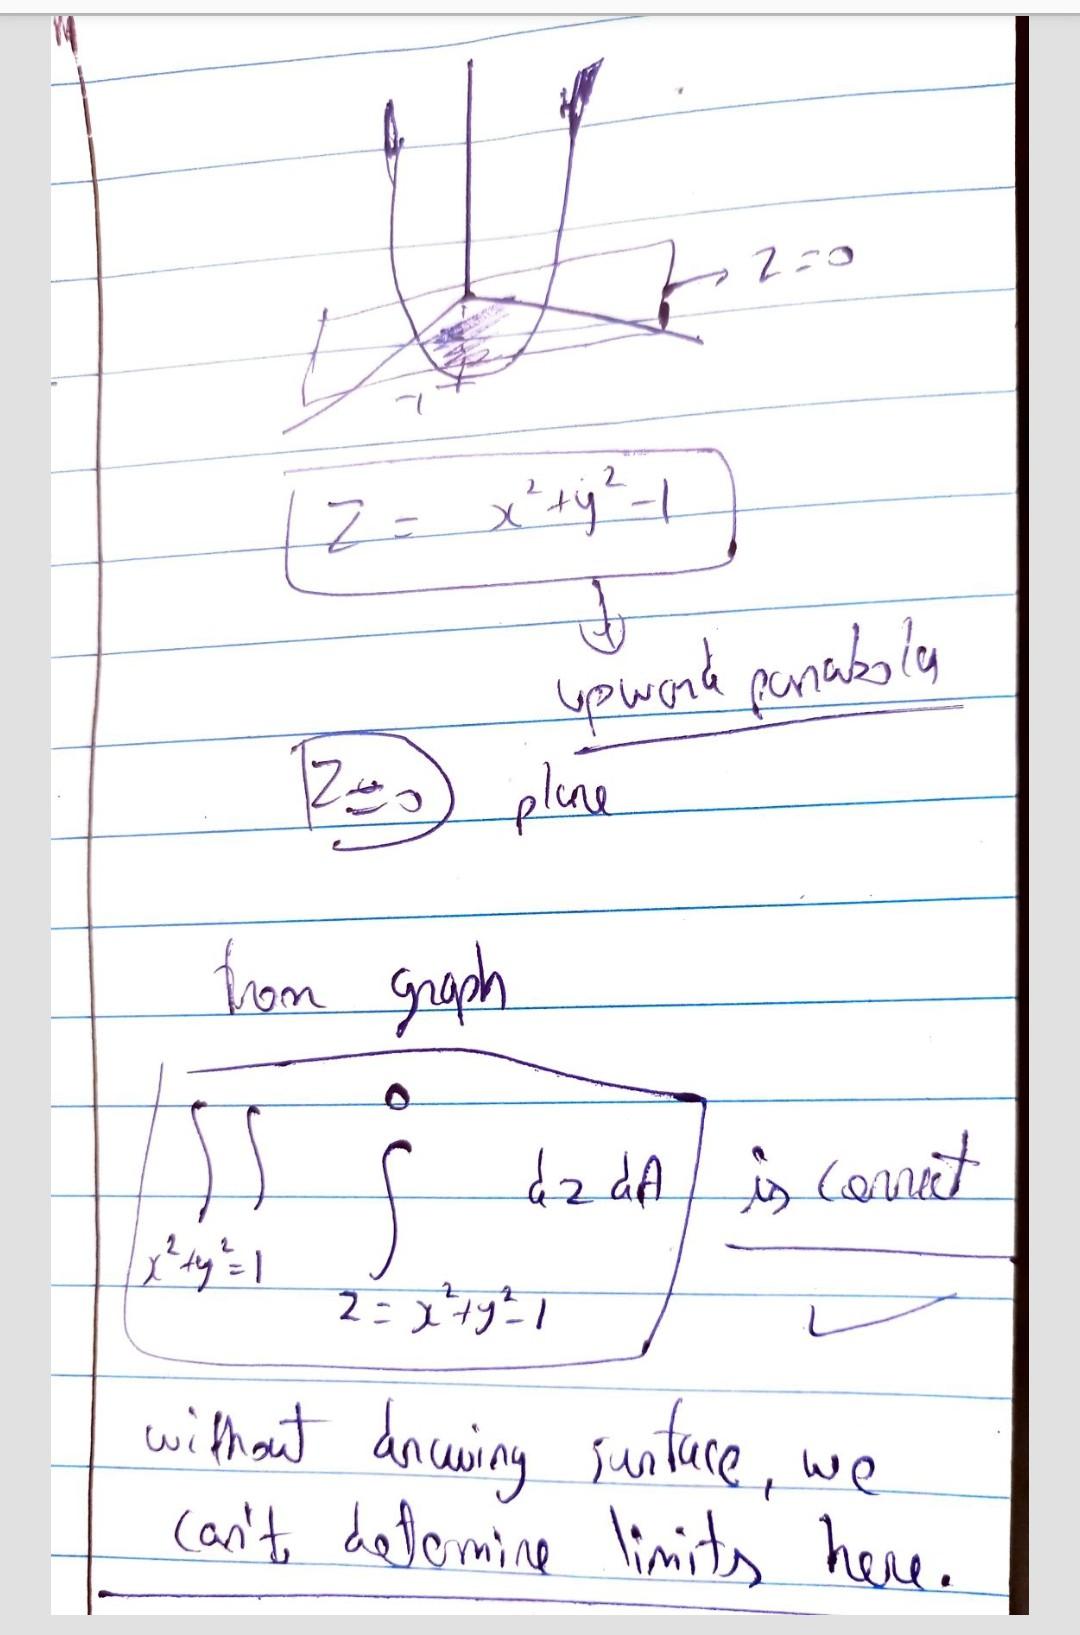 z=0
-1
Z = x²+y²-1
upward parabola
Z=0 plane
from graph
∫∫ x²+y²=1 ∫ 0 z=x²+y²-1 dz dA is correct
without drawing surface, we
can't determine limits here.